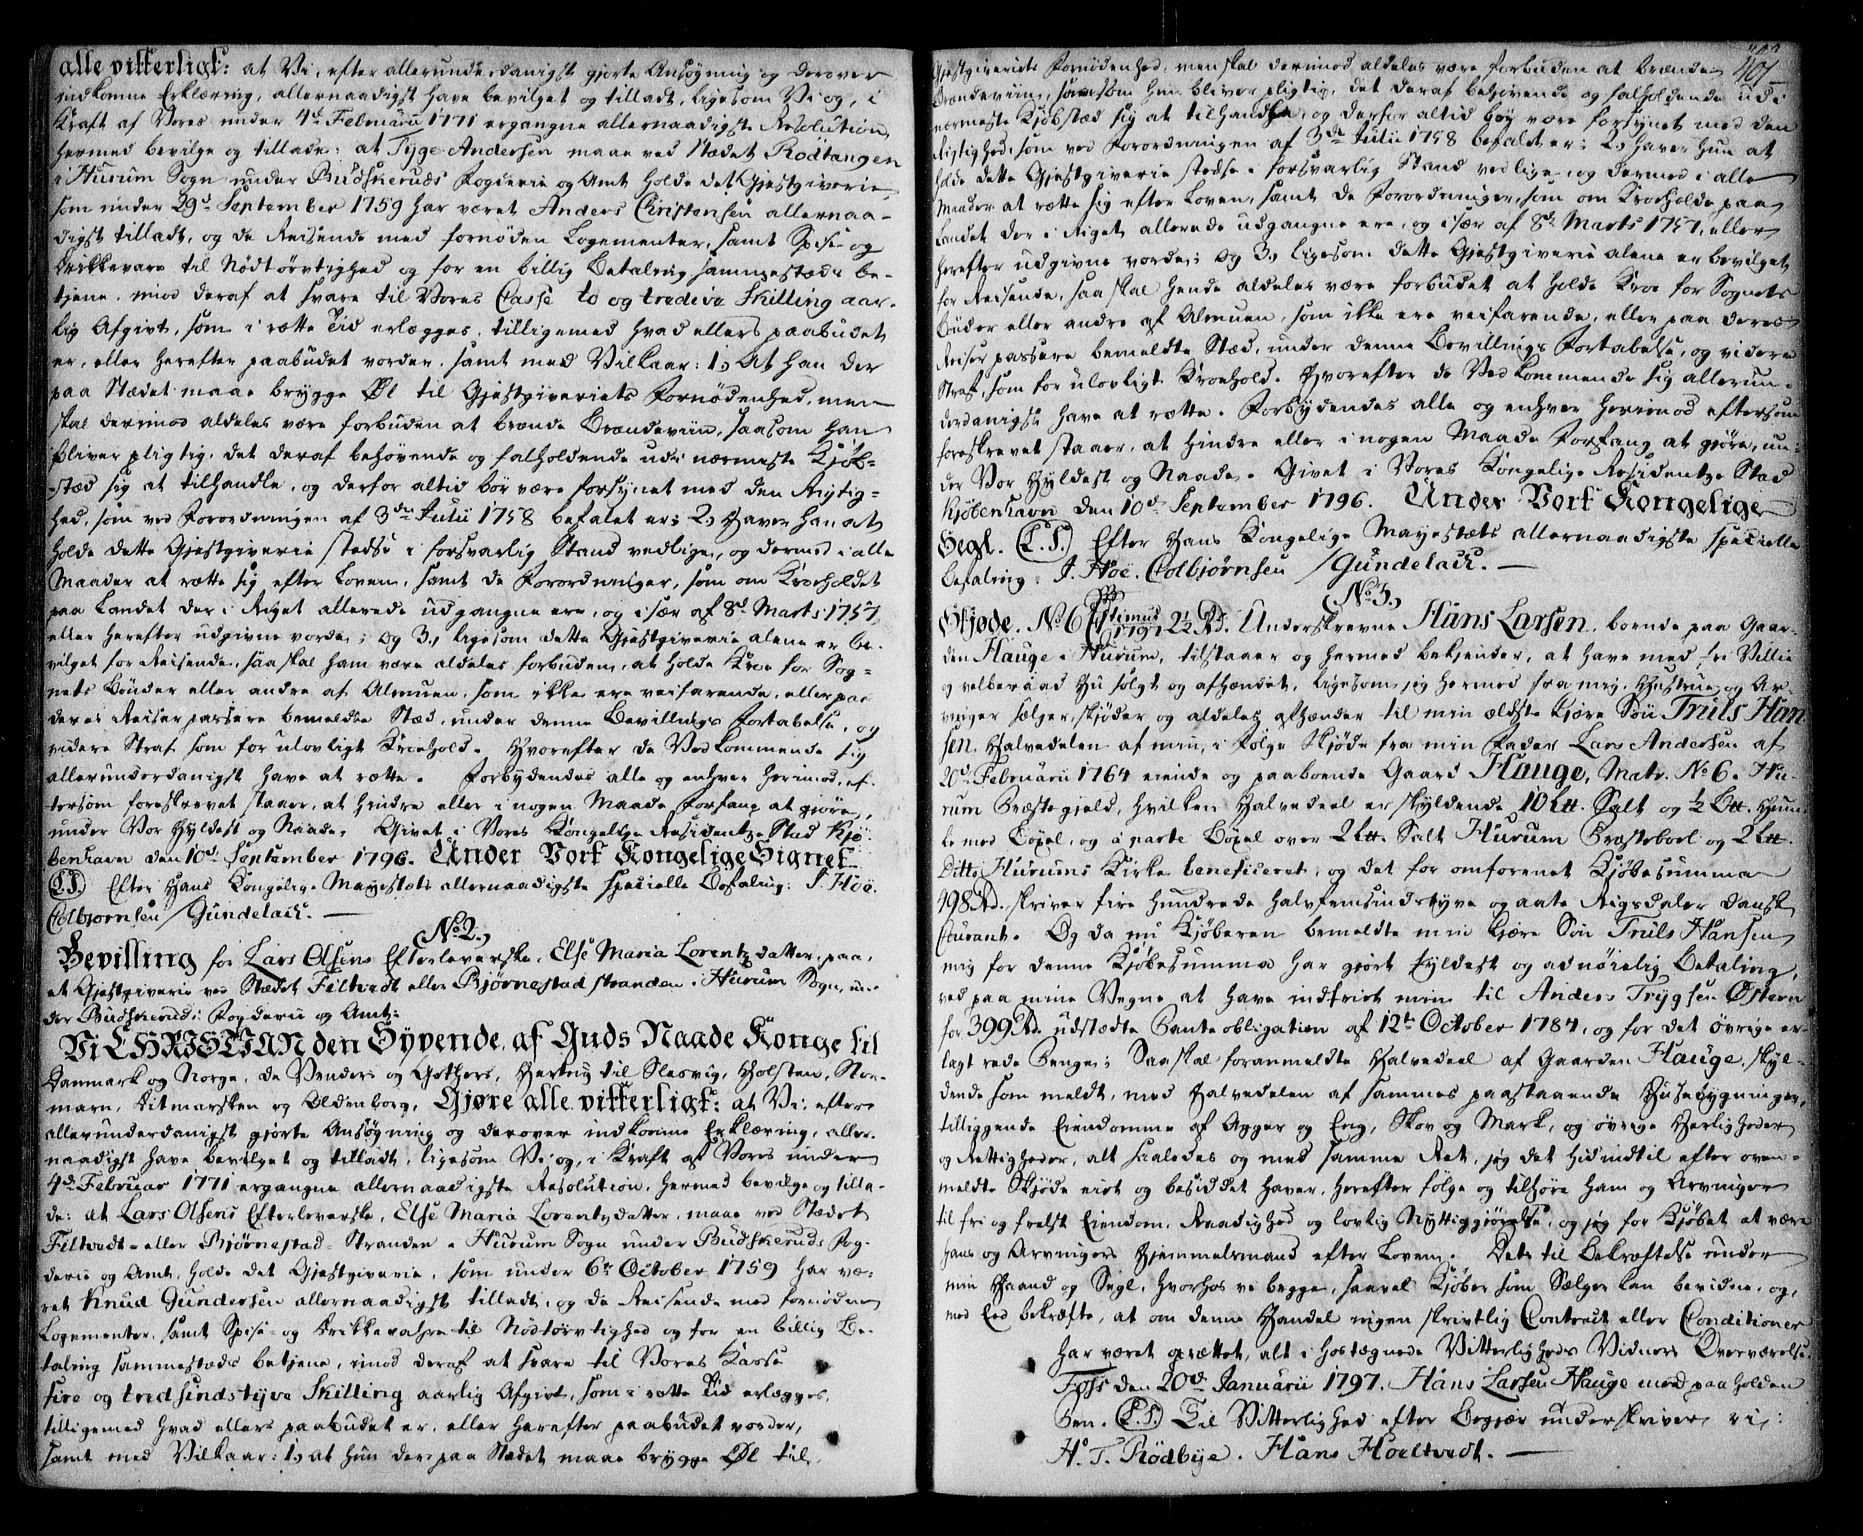 alle vitterligt: at Vi, efter allerunderdanigst giorte Ansøgning og derover
indkomne Erklæring, allernaadigst have bevilget og tilladt, ligesom Vi og, i
Kraft af Vores under 4de Februarii 1771 ergangne allernaadigste Resolution,
hermed bevilge og tillade: at Tyge Andersen maae ved Stædet Rødtangen
i Hurum Sogn under Budskeruds Fogderie og Amt holde det Gjestgiverie,
som under 29de September 1759 har været Anders Christensen allernaa-
digst tilladt, og de Reisende med fornøden Logementer, samt Spise og
Drikkevare til Nødtørftighed og for en billig Betaling sammestæds be-
tjene, mod deraf at svare til Vores Casse to og tredive Skilling aar-
lig Afgivt, som i rætte Tid erlægges, tilligemed hvad ellers paabudet
er, eller herefter paabudet vorder, samt med Vilkaar: 1.) At han der
paa Stædet maae brygge Øl til Gjestgiveriets Fornødenhed, men
skal derimod aldeles være forbuden at brænde Brændeviin, saasom han
bliver pligtig, det deraf behøvende og falholdende udi nærmeste Kjøb-
stæd sig at tilhandle, og derfor altid bør være forsynet med den Rigtig-
hed, som ved Forordningen af 3die Julii 1758 befalet er; 2.) Haver Han at
holde dette Gjestgiverie stedse i forsvarlig Stand vedlige, og dermed i alle
Maader at rætte sig efter Loven, samt de Forordninger, som om Kroeholdet
paa Landet der i Riget allerede udgangne ere, og i sær af 8de Marts 1757,
eller herefter udgivne vorde; og 3.) ligesom dette Gjestgiverie alene er be-
vilget for Reisende, saa skal ham være aldeles forbuden, at holde Kroe for Sog-
nets Bønder eller andre af Almuen, som ikke ere veifarende, eller paa
deres Reiser passere bemeldte Stæd, under denne Bevillings Fortabelse, og
videre Straf som for ulovligt Kroehold. Hvorefter de Vedkommende sig
allerunderdanigst have at rætte. Forbydendes alle og enhver herimod, ef-
tersom foreskrevet staaer, at hindre eller i nogen Maade Forfang at gjøre,
under Vor Hyldest og Naade. Givet i Vores Kongelige Residentze Stad Kjø-
benhavn den 10de September 1796. Under Vort Kongelige Signet
(L.S.) Efter Hans Kongelige Mayestæts allernaadigste specielle Befaling: J. Höe.
Colbjørnsen / Gundelach.
No. 2.)
Bevilling for Lars Olsens Efterleverske, Else Maria Lorentzdatter, paa,
et Gjestgiverie ved Stædet Filtvedt eller Bjørnestad stranden i Hurum Sogn, un-
der Budskeruds Fogderie og Amt:
Vi CHRISTIAN den Syvende, af Guds Naade Konge til
Danmark og Norge, de Venders og Gothers, Hertug til Slesvig, Holsten, Stor-
marn, Ditmarsken og Oldenborg, Gjøre alle vitterligt: at Vi, efter
allerunderdanigst gjorte Ansøgning og derover indkomne Erklæring, aller-
naadigst have bevilget og tilladt, ligesom Vi og, i Kraft af Vores under
4de Februar 1771 ergangne allernaadigste Resolution, hermed bevilge og tilla-
de: at Lars Olsens Efterleverske, Else Maria Lorentzdatter, maae ved Stædet
Filtvedt- eller Bjørnestad-Stranden i Hurum Sogn under Budskeruds Fog-
derie og Amt, holde det Gjestgiverie, som under 6te October 1759 har væ-
ret Knud Gundersen allernaadigst tilladt, og de Reisende med fornødne
Logementer, samt Spise- og Drikkevahre til Nødtørvtighed og for en billig Be-
taling sammestæds betjene, imod deraf at svare til Vores Kasse
fire og tredsindstyve Skilling aarlig Afgivt, som i rætte Tid erlægges,
tilligemed hvad ellers paabudet er, eller herefter paabudet vorder,
samt med Vilkaar: 1.) at hun der paa Stædet maae brygge Øl til
401
Gjestgiveriets Fornødenhed, men skal derimod aldeles være forbuden at brænde
Brændeviin, saasom hun bliver pligtig, det deraf behøvende og falholdende udi
nærmeste Kjøbstæd sig at tilhandle, og derfor altid bør være forsynet med den
Rigtighed, som ved Forordningen af 3die Julii 1758 befalet er; 2.) haver hun at
holde dette Gjestgiverie stedse i forsvarlig Stand vedlige, og dermed i alle
Maader at rætte sig efter Loven, samt de Forordninger, som om Kroeholdet paa
Landet der i Riget allerede udgangne ere, og i sær af 8de Marts 1757, eller
herefter udgivne vorde; og 3.) ligesom dette Gjestgiverie alene er bevilget
for Reisende, saa skal hende aldeles være forbudet at holde Kroe for Sognets
Bønder eller andre af Almuen, som ikke ere veifarende, eller paa deres
Reiser passere bemeldte Stæd, under denne Bevillings Fortabelse, og videre
Straf, som for ulovligt Kroehold. Hvorefter de Vedkommende sig allerun-
derdanigst have at rætte. Forbydendes alle og enhver herimod eftersom
foreskrevet staaer, at hindre eller i nogen Maade Forfang at gjøre, un-
der Vor Hyldest og Naade. Givet i Vores Kongelige Residentze Stad
Kjøbenhavn den 10de September 1796. Under Vort Kongelige
Segl. (L.S.) Efter Hans Kongelige Mayestæts allernaadigste specielle
Befaling. J. Höe. Colbjørnsen / Gundelach.
No. 3.)
Skjøde. No 6 1797 2½ Rd. Underskrevne Hans Larsen, boende paa Gaar-
den Hauge i Hurum, tilstaaer og hermed bekjender, at have med fri Villie
og velberaad Hu solgt og afhændet, ligesom jeg hermed fra mig, Hustrue og Ar-
vinger sælger, skjøder og aldeles afhænder til min ældste kjære Søn Truls Han-
sen, Halvedelen af min, i Følge Skjøde fra min Fader Lars Andersen af
20de Februarii 1764 eiende og paaboende Gaard Hauge, Matr. No 6. Hu-
rum Præstegjeld, hvilken Halvedeel er skyldende 10 Ltt. Salt og ½ Btt. Hum-
le med Bøxel, og à parte Bøxel over 2 Ltt. Salt Hurum Præstebol og 2 Ltt.
Ditto Hurums Kirke beneficeret, og det for omforenet Kjøbesumma
498 Rd. skriver fire Hundrede halvfemsindstyve og aatte Rigsdaler dansk
Courant. Og da nu Kjøberen bemeldte min kjære Søn Truls Hansen
mig for denne Kjøbesumma har gjort fyldest og adnøielig Betaling,
ved paa mine Vegne at have indfriet min til Anders Trygsen Østern
for 399 Rd. udstædte Panteobligation af 12te October 1784, og for det øvrige er-
lagt rede Penge; Saa skal foranmeldte Halvedeel af Gaarden Hauge, skyl-
dende som meldt, med Halvedelen af sammes paastaaende Husebygninger,
tilliggende Eiendomme af Agger og Eng, Skov og Mark, og øvrige Herligheder
og Rettigheder, alt saaledes og med samme Ret, jeg det hidindtil efter oven-
meldte Skjøde eiet og besiddet haver, herefter følge og tilhøre ham og Arvinger
til fri og frelst Eiendom, Raadighed og lovlig Nyttiggjørelse, og jeg for Kjøbet at være
hans og Arvingers Hjemmelsmand efter Loven. Dets til Bekræftelse under
min Haand og Segl, hvorhos vi begge, saavel Kjøber som Sælger kan bevidne, og,
med Eed bekræfte, at om denne Handel ingen skrivtlig Contract eller Conditioner
har været oprættet, alt i hostegnede Vitterligheds Vidners Overværelse
Foss den 20de Januarii 1797. Hans Larsen Hauge med paaholden
Pen. (L.S.) Til Vitterlighed efter Begjær underskriver vi:
H. T. Rødbye. Hans Hoeltvedt.